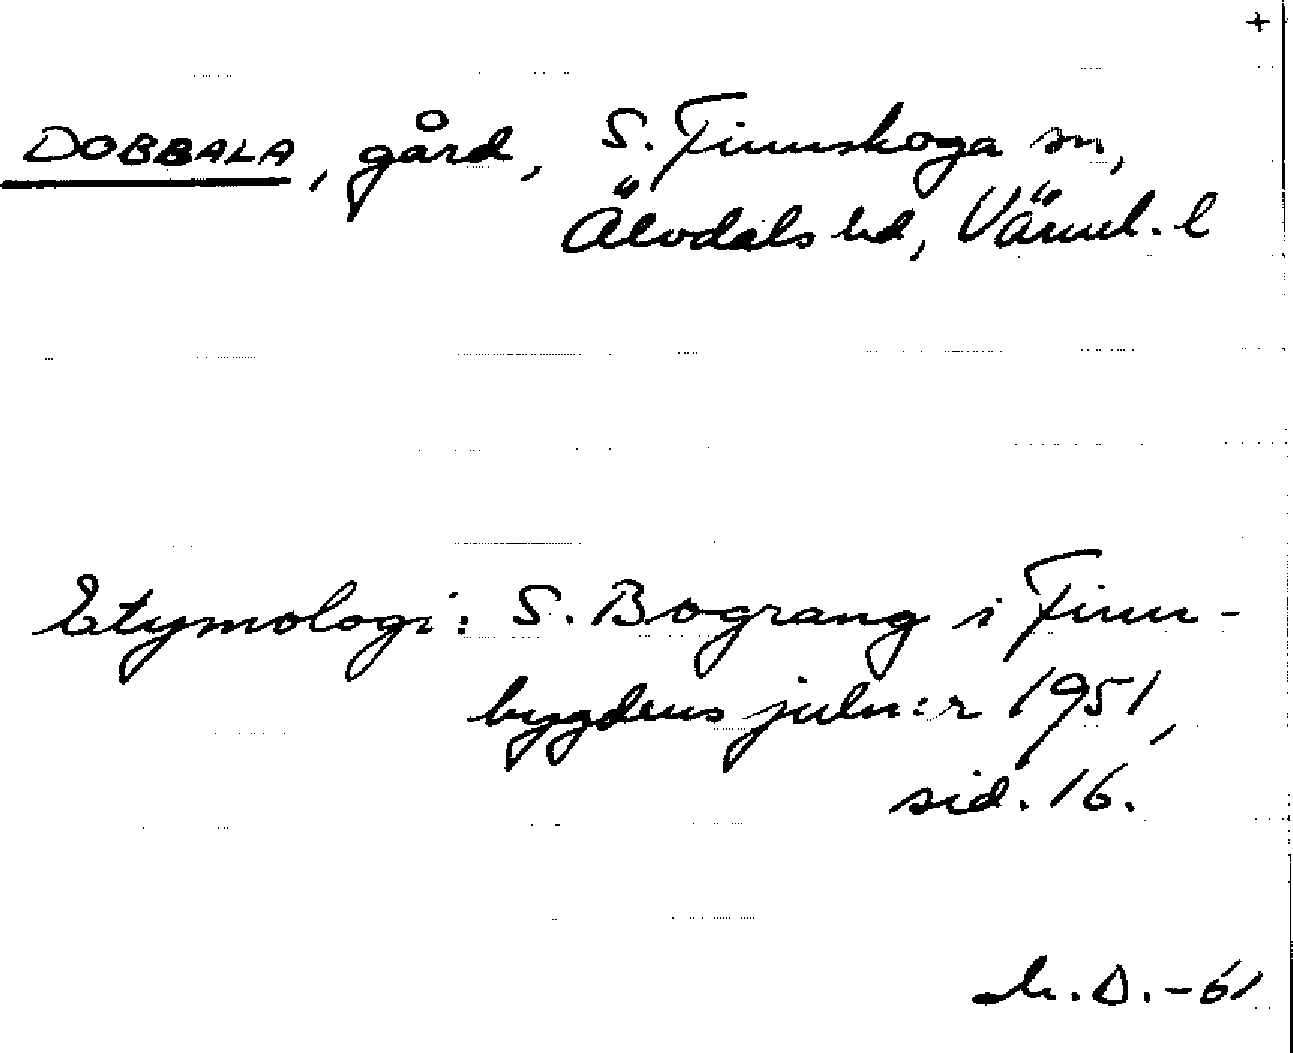 +
DOBBALA, gård, S. Finnskoga sn,
Älvdals hd, Värml. l
Etymologi: S. Bograng i Finn-
bygdens juln:r 1951,
sid. 16.
D. -61